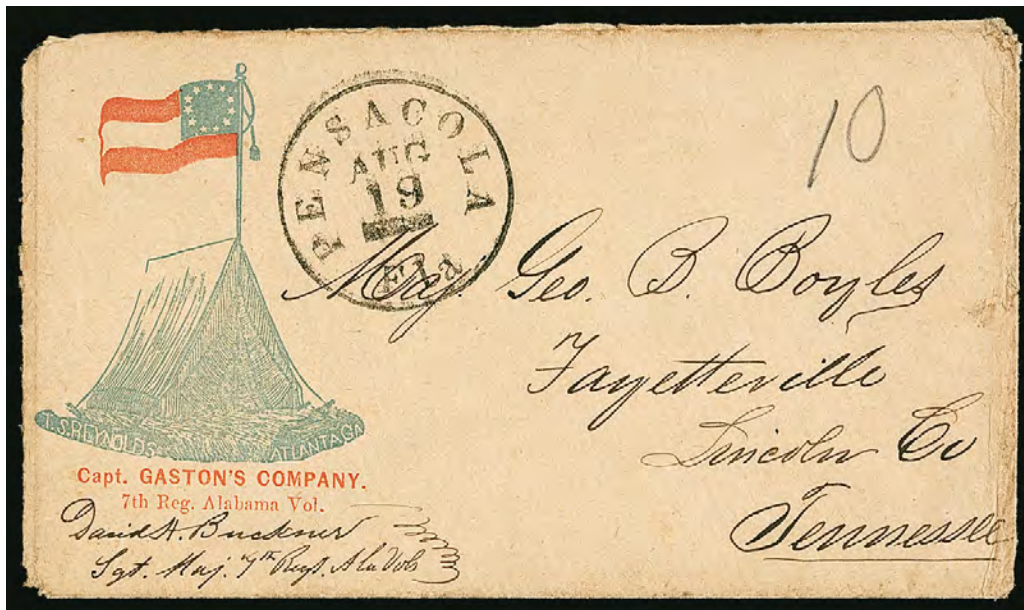 PENSACOLA
AUG
19
Fla
10
Maj. Geo. B. Boyles
Fayetteville
Lincoln Co
Tennessee
T.S. REYNOLDS ATLANTA GA
Capt. GASTON'S COMPANY.
7th Reg. Alabama Vol.
David H. Buckner
Sgt. Maj. 7th Regt. Ala Vols